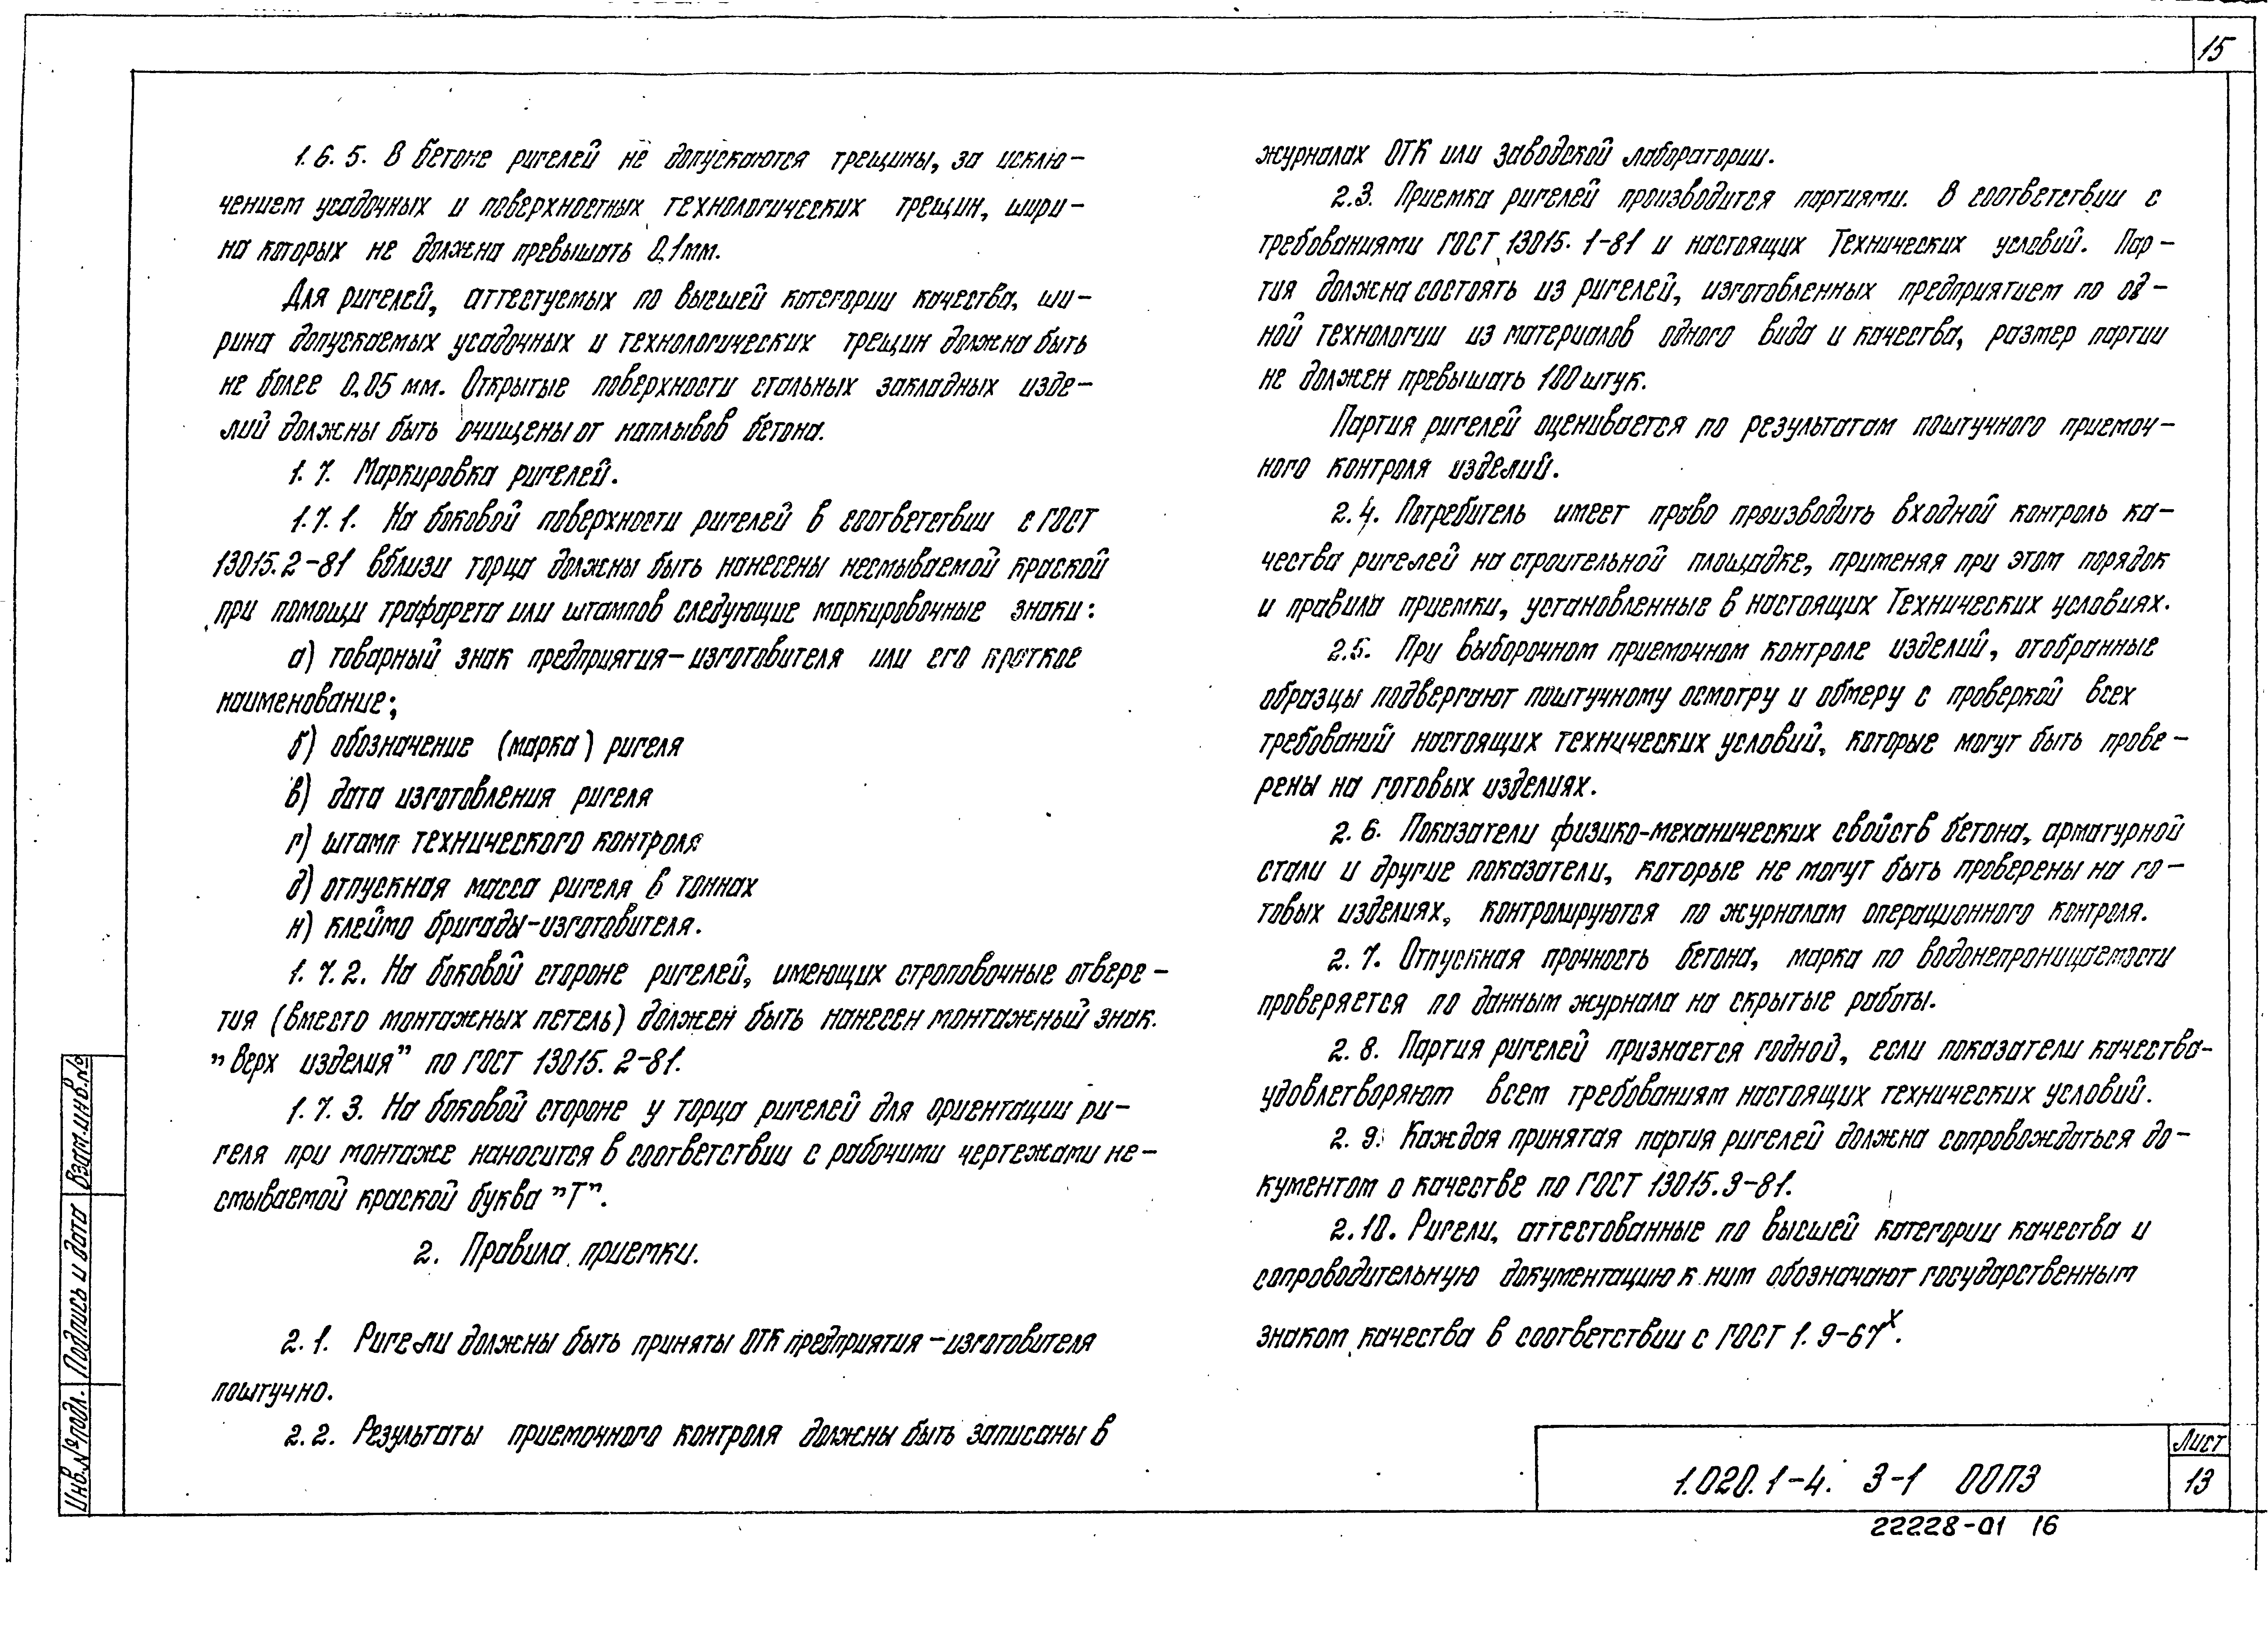 15
1.6.5. В бетоне ригелей не допускаются трещины, за исклю-
чением усадочных и поверхностных технологических трещин, шири-
на которых не должна превышать 0,1мм.
Для ригелей, аттестуемых по высшей категории качества, ши-
рина допускаемых усадочных и технологических трещин должна быть
не более 0,05 мм. Открытые поверхности стальных закладных изде-
лий должны быть очищены от наплывов бетона.
1.7. Маркировка ригелей.
1.7.1. На боковой поверхности ригелей в соответствии с ГОСТ
13015.2-81 вблизи торца должны быть нанесены несмываемой краской
при помощи трафарета или штампов следующие маркировочные знаки:
а) товарный знак предприятия-изготовителя или его краткое
наименование;
б) обозначение (марка) ригеля
в) дата изготовления ригеля
г) штамп технического контроля
д) отпускная масса ригеля в тоннах
н) клеймо бригады-изготовителя.
1.7.2. На боковой стороне ригелей, имеющих строповочные отверс-
тия (вместо монтажных петель) должен быть нанесен монтажный знак.
"Верх изделия" по ГОСТ 13015.2-81.
1.7.3. На боковой стороне у торца ригелей для ориентации ри-
геля при монтаже наносится в соответствии с рабочими чертежами не-
смываемой краской буква "Т".
2. Правила приемки.
2.1. Ригели должны быть приняты ОТК предприятия-изготовителя
поштучно.
2.2. Результаты приемочного контроля должны быть записаны в
журналах ОТК или заводской лаборатории.
2.3. Приемка ригелей производится партиями. В соответствии с
требованиями ГОСТ 13015.1-81 и настоящих Технических условий. Пар-
тия должна состоять из ригелей, изготовленных предприятием по од-
ной технологии из материалов одного вида и качества, размер партии
не должен превышать 100 штук.
Партия ригелей оценивается по результатам поштучного приемоч-
ного контроля изделий.
2.4. Потребитель имеет право производить входной контроль ка-
чества ригелей на строительной площадке, применяя при этом порядок
и правила приемки, установленные в настоящих Технических условиях.
2.5. При выборочном приемочном контроле изделий, отобранные
образцы подвергают поштучному осмотру и обмеру с проверкой всех
требований настоящих технических условий, которые могут быть прове-
рены на готовых изделиях.
2.6. Показатели физико-механических свойств бетона, арматурной
стали и другие показатели, которые не могут быть проверены на го-
товых изделиях, контролируются по журналам операционного контроля.
2.7. Отпускная прочность бетона, марка по водонепроницаемости
проверяется по данным журнала на скрытые работы.
2.8. Партия ригелей признается годной, если показатели качества-
удовлетворяют всем требованиям настоящих технических условий.
2.9. Каждая принятая партия ригелей должна сопровождаться до-
кументом о качестве по ГОСТ 13015.3-81.
2.10. Ригели, аттестованные по высшей категории качества и
сопроводительную документацию к ним обозначают государственным
знаком качества в соответствии с ГОСТ 1.9-67ˣ.
Инв.№ подл. Подпись и дата Взам.инв.№
1.020.1-4. 3-1 00ПЗ
Лист
13
22228-01 16